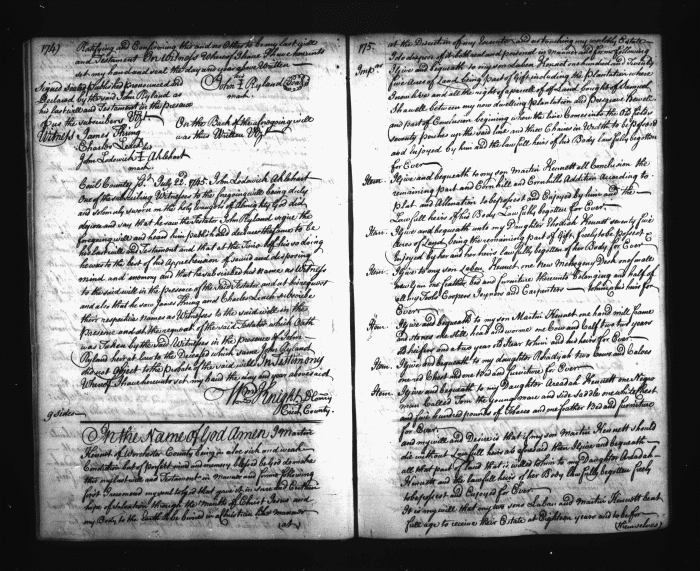 174)
Ratifying and Confirming this and no other to be my last will
and Testament In Witness Whereof I have hereunto
set my hand and seal the day and year above Written
his
John I Ryland Seal
mark
Signed Sealed published pronounced and
Declared by the said John Ryland as
his last will and Testament in the presence
of us the subscribers Viz.t
Witness James Thing
Charles Leech
his
John Lodewich I Ahlehart
mark
On the Back of the foregoing will
was thus Written Viz.t
Cecil County Ss. July 22d 1745. John Lodewich Ahlehart
one of the subscribing Witnesses to the foregoing will being duly
and solemnly sworn on the Holy Evangels of Almighty God did
depose and say that he saw the Testator John Ryland sign the
foregoing will and heard him publish and declare the same to be
his last will and Testament and that at the Time of his so doing
he was to the best of his Apprehension of sound and disposing
mind and memory and that he subscribed his name as Witness
to the said will in the presence of the said Testator and at his request
and also that he saw James Thing and Charles Leech subscribe
their respective Names as Witnesses to the said will in the
presence and at the request of the said Testator which Oath
was Taken by the said Witness in the presence of John
Ryland heir at Law to the Deceased which same John Ryland
did not object to the Probate of the said will In Testimony
Whereof I have hereunto set my hand the day and year abovesaid
Wm Knight D Com.ry
Cecil County
9 sides
In the Name of God Amen I Martin
Kennett of Worchester County being in a low sick and weak
Condition but of perfect mind and memory blessed be God do make
this my last will and Testament in manner and form following
first I recommend my soul to god that gave it in sure and Certain
hope of salvation through the Merits of Christ Jesus and
my Body to the Earth to be buried in a Christian like manner
(at)
175.
at the Discretion of my Executor and as touching my worldly Estate
I do dispose of it both real and personal in manner and form following
Imprs. I give and bequeath to my son Laban Kennett one hundred and Twenty
five Acres of Land being part of Fife including the Plantation where
I now live and all the right of a parcel of
between my now dwelling plantation and
and part of Conclusion begining where the line Comes into the Old field
up the said line and three Chains in Width to be possest
and enjoyed by him and the Lawfull heirs of his Body lawfully begotten
for Ever
Item. I give and bequeath to my son Martin Kennett all Conclusion the
remaining part and Cornhill and Cornhills Addition According to
plat and Allienation to be possest and Enjoyed by him and the
Lawfull heirs of his Body Lawfully begotten for Ever
Item. I give and bequeath unto my Daughter Rhodiah Kennett seventy five
Acres of Land being the remaining part of Fife freely to be possest &
Enjoyed by her and her heirs lawfully begotten of her Body for Ever
Item. I give to my son Laban Kennett one New Mehogeny Desk one small
one feather bed and furniture thereunto Belonging and half of
all my Tools Coopers Joyners and Carpenters to him and his heirs for
Ever
Item. I give and bequeath to my son Martin Kennet one hand mill frame
and stones one still head and worme one Cow and Calf two two years
old heifers and a two year old Steer to him and his heirs for Ever
Item. I give and bequeath to my daughter Rhodiyah two Cows and Calves
one red Chest and one bed and furniture for Ever
Item. I give and bequeath to my Daughter Aradah Kennett one Negro
man Called Tom the young mare and side saddle one white Chest
and five hundred pounds of Tobacco and one feather Bed and furniture
for Ever.
and my will and Desire is that if my son Martin Kennett should
die without Lawfull heirs as aforesaid then I give and bequeath
all that part of land that is willed to him to my Daughter Aradah
Kennett and the lawfull heirs of her Body lawfully begotten freely
to be possest and Enjoyed for Ever
It is my will that my two sons Laban and Martin Kennett be at
full age to receive their Estate at Eighteen years and to be for
(themselves)